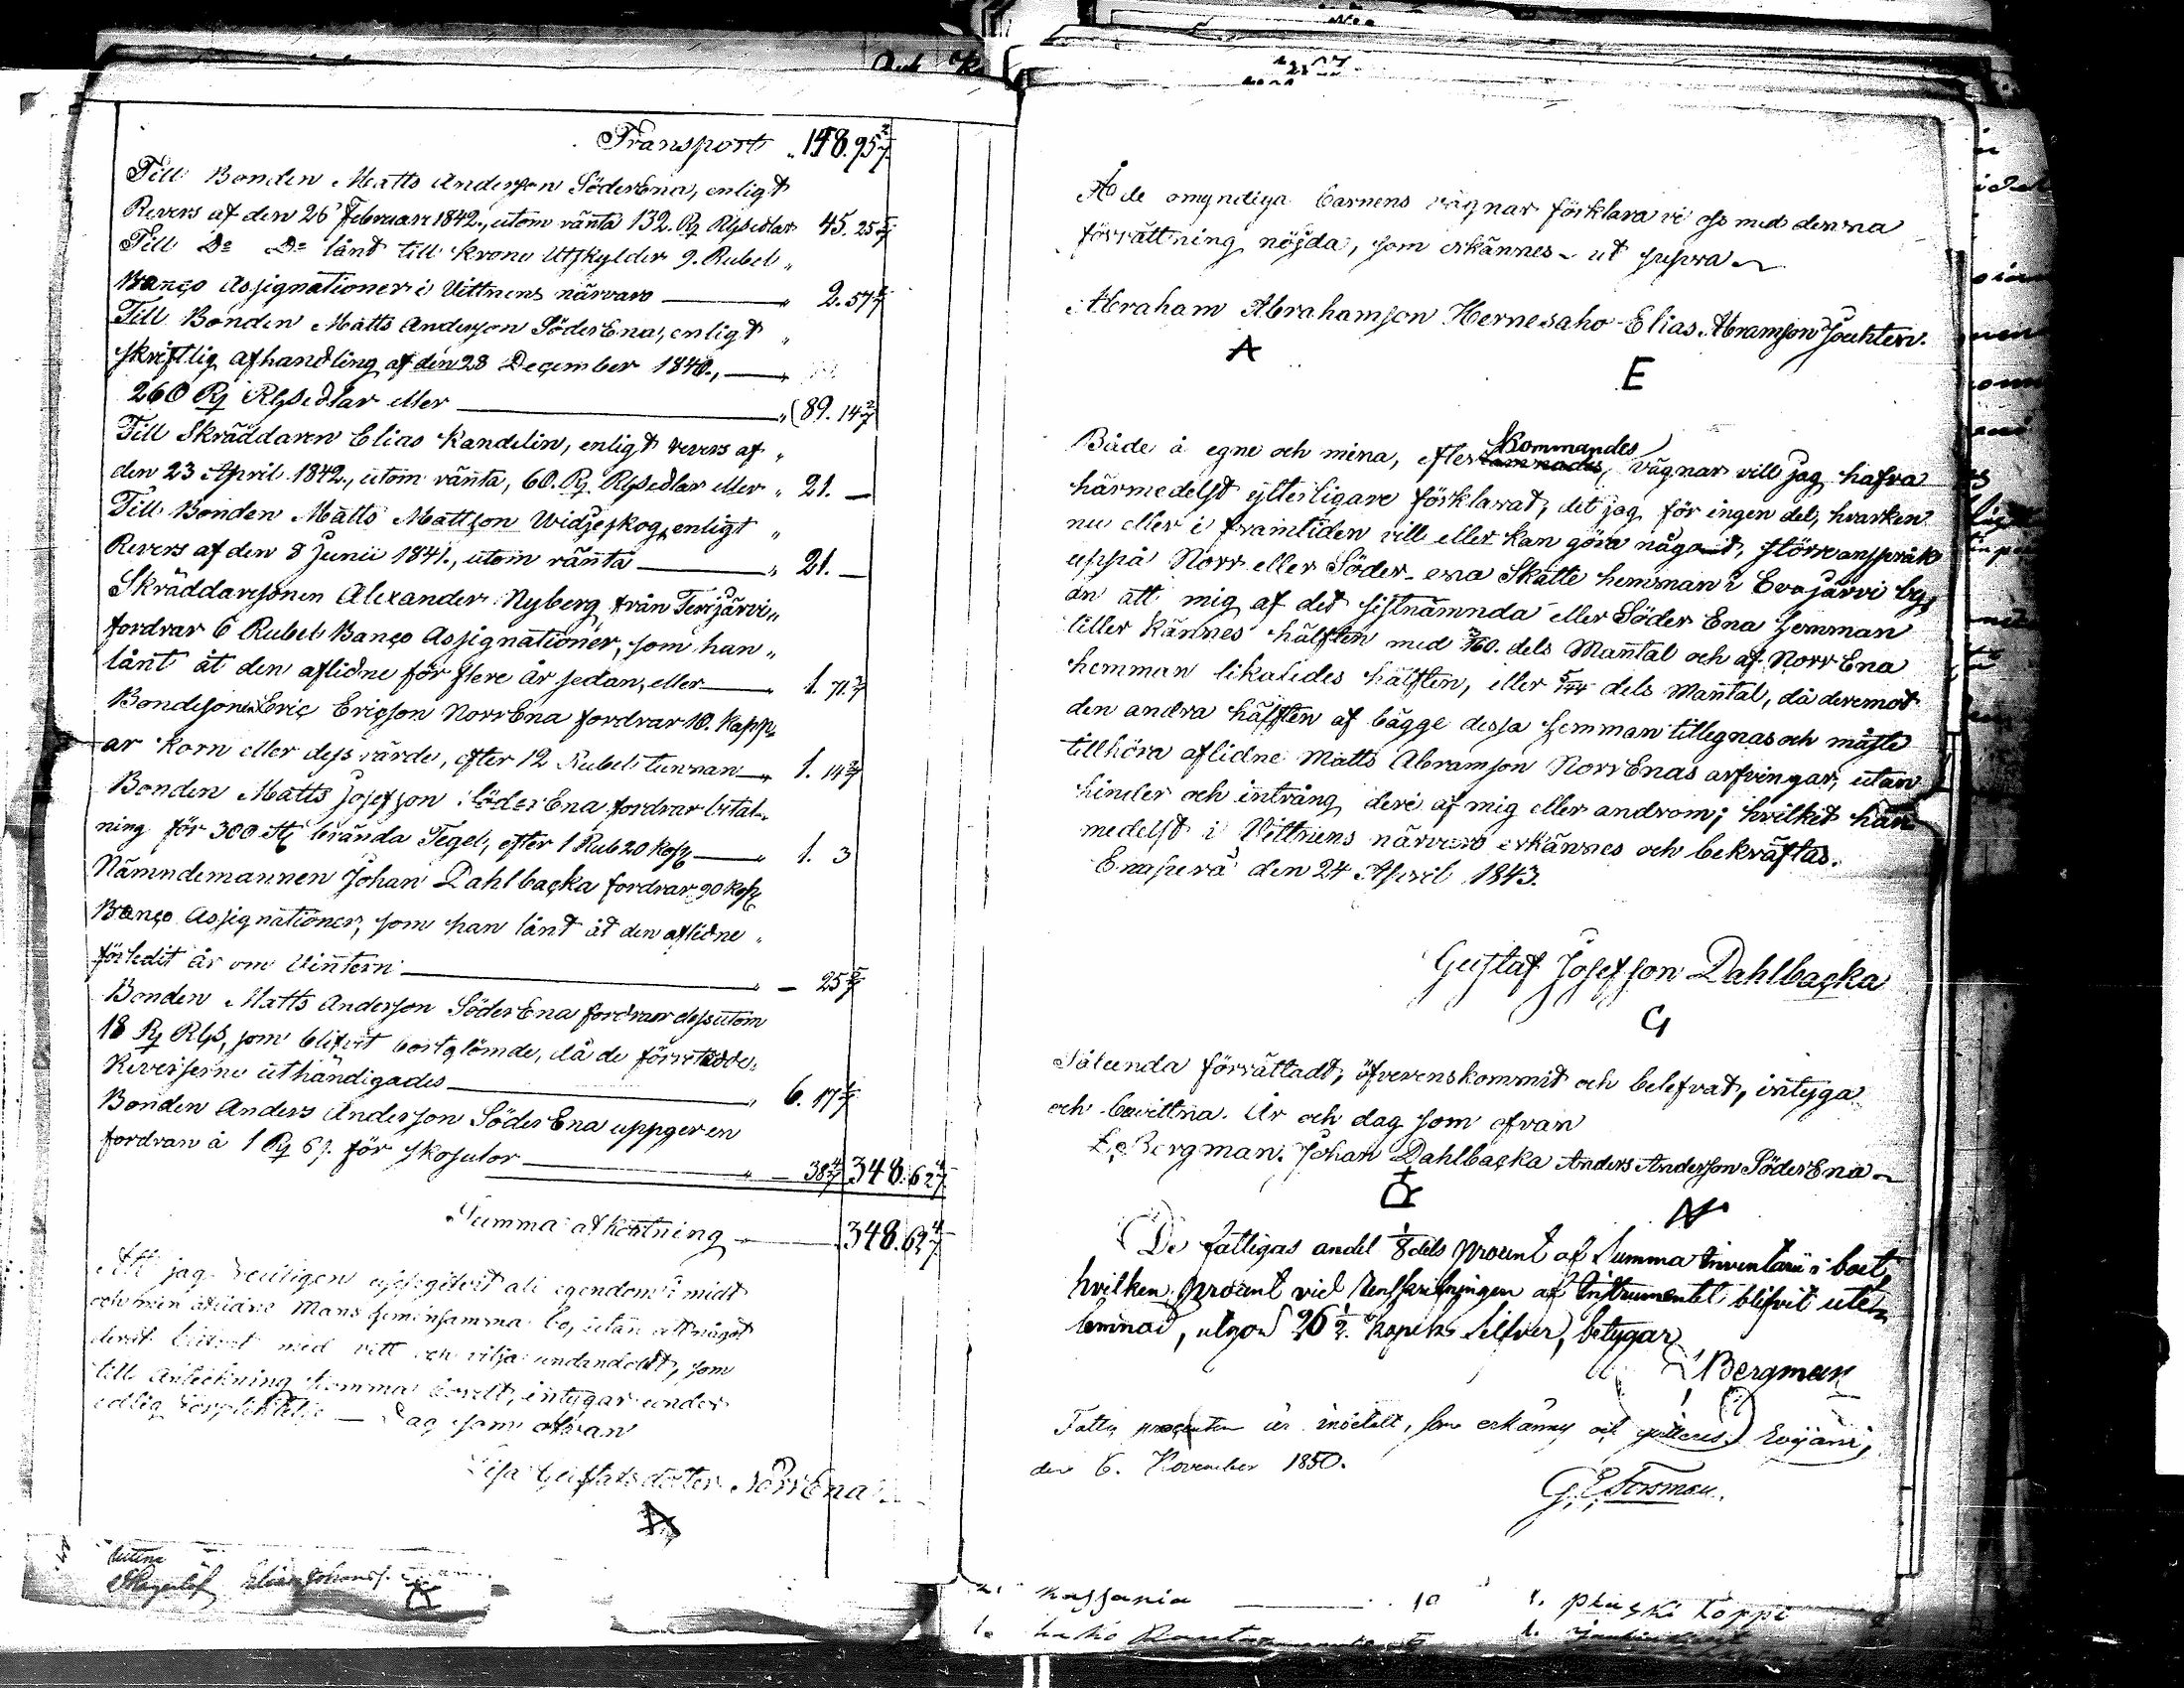 Transport 148. 95 2/7
Till Bonden Matts Anderson SöderEna, enligt
Revers af den 26 Februari 1842., utom ränta 132. Rg Rgsedlar 45. 25 5/7
Till Do Do lånt till krono Utskylder 9. Rubel
Banco Assignationer i Vittnens närvaro — 2. 57 1/7
Till Bonden Matts Anderson SöderEna, enligt
skriftlig afhandling af den 28 December 1840., —
260 Rg Rgsedlar eller — 89. 14 2/7
Till Skräddaren Elias Kandelin, enligt revers af
den 23 April 1842., utom ränta, 60. Rg. Rgsedlar eller 21. —
Till Bonden Matts Mattson Widjeskog, enligt
Revers af den 8 Junii 1841., utom ränta — 21. —
Skräddaresonen Alexander Nyberg från Terijärvi
fordrar 6 Rubel Banco Assignationer, som han
lånt åt den aflidne för flere år sedan, eller — 1. 71 3/7
Bondesonen Eric Ericson NorrEna fordrar 10. kapp-
ar korn eller dess värde, efter 12 Rubel tunnan — 1. 14 2/7
Bonden Matts Josefson SöderEna fordrar betal-
ning för 300 st brända Tegel, efter 1 Rub 20 kop — 1. 3
Nämndemannen Johan Dahlbacka fordrar 90 kop
Banco Assignationer, som han lånt åt den aflidne
förledit år om Vintern — 25 5/7
Bonden Matts Anderson SöderEna fordrar dessutom
18 Rg Rgs, som blifvit bortglömde, då de förre
Reverserne uthändigades — 6. 17 1/7
Bonden Anders Anderson SöderEna uppger en
fordran à 1 Rg 6 s. för skosulor — 38 4/7 348. 62 4/7
Summa afkortning — 348. 62 4/7
Att jag redligen uppgifvit all egendom i mitt
och min aflidne Mans gemensamma bo, utan att något
deraf blifvit med vett och vilja undandolt, som
till anteckning komma bordt, intygar under
edlig förpliktelse — Dag som ofvan
Lisa Gustafsdotter NorrEna
A
Elias Johanss.
Å de omyndiga barnens vägnar förklara vi oss med denna
förrättning nöjda, som erkännes ut supra
Abraham Abrahamson Hernesaho Elias Abramson Jouhten.
A E
Både å egne och mina, efterkommandes, vägnar vill jag hafva
härmedelst ytterligare förklarat, det jag för ingen del, hvarken
nu eller i framtiden vill eller kan göra något, större anspråk
uppå Norr eller Söder-ena Skatte hemman i Evajärvi by,
än att mig af det sistnämnda eller Söder Ena hemman
tiller kännes hälften med 7/160. dels Mantal och af Norr Ena
hemman likaledes hälften, eller 5/144 dels Mantal, då deremot
den andra hälften af bägge dessa hemman tillegnas och måste
tillhöra aflidne Matts Abramson NorrEnas arfvingar, utan
hinder och intrång deri af mig eller androm; hvilket här-
medelst i Vittnens närvaro erkännes och bekräftas.
Enaperä den 24 April 1843.
Gustaf Josefson Dahlbacka
G
Sålunda förrättadt, öfverenskommit och belefvat, intyga
och bevittna. År och dag som ofvan
E. Bergman. Johan Dahlbacka Anders Anderson SöderEna
De fattigas andel 1/8 dels procent af Summa Inventarii i boet,
hvilken procent vid Renskrifningen af Instrumentet blifvit ute-
lemnad, utgör 26 1/2 kopek Silfver, betygar
Bergman
Fattig procenten är inbetalt, som erkännes och qvitteras. Evijärvi,
den 6. November 1850.
G. E. Forsman.